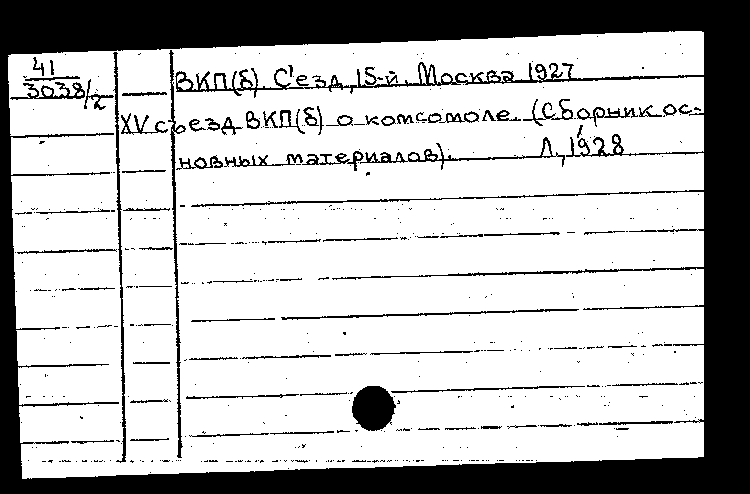 41
3038/2
ВКП(б) С'езд, 15-й. Москва 1927
XV съезд ВКП(б) о комсомоле. (Сборник ос-
новных материалов). Л., 1928